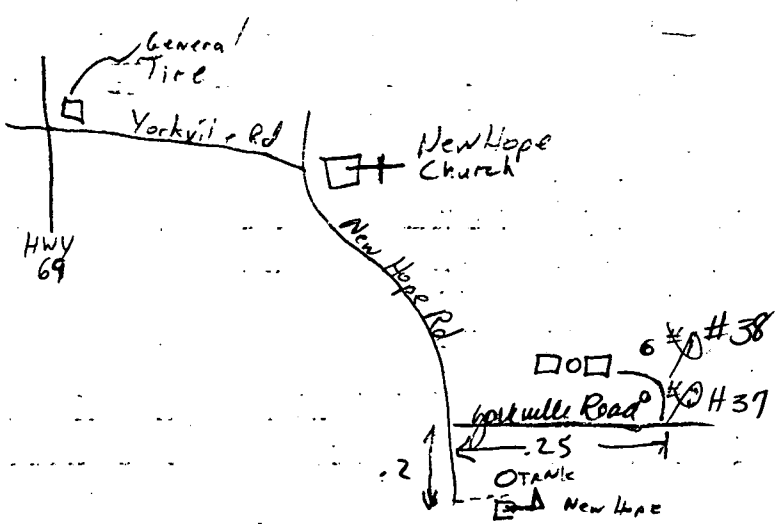 General
Tire
Yorkville Rd
New Hope
Church
HWY
69
New Hope Rd.
6 #38
Yorkville Road
H37
.25
.2
TANK
New Hope